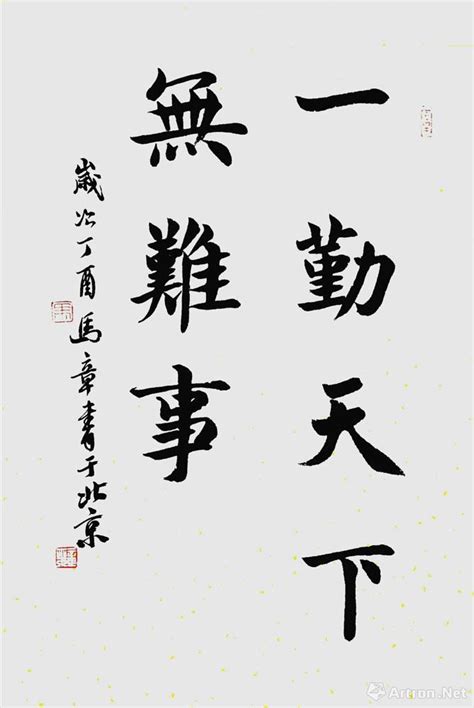 一勤天下
無難事
歲次丁酉馬章青于北京
Artron.Net